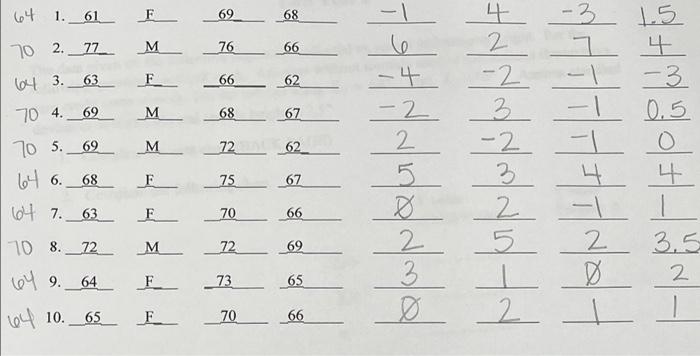 64 1. 61 F 69 68 -1 4 -3 1.5
70 2. 77 M 76 66 6 2 7 4
64 3. 63 F 66 62 -4 -2 -1 -3
70 4. 69 M 68 67 -2 3 -1 0.5
70 5. 69 M 72 62 2 -2 -1 0
64 6. 68 F 75 67 5 3 4 4
64 7. 63 F 70 66 0 2 -1 1
70 8. 72 M 72 69 2 5 2 3.5
64 9. 64 F 73 65 3 1 0 2
64 10. 65 F 70 66 0 2 1 1